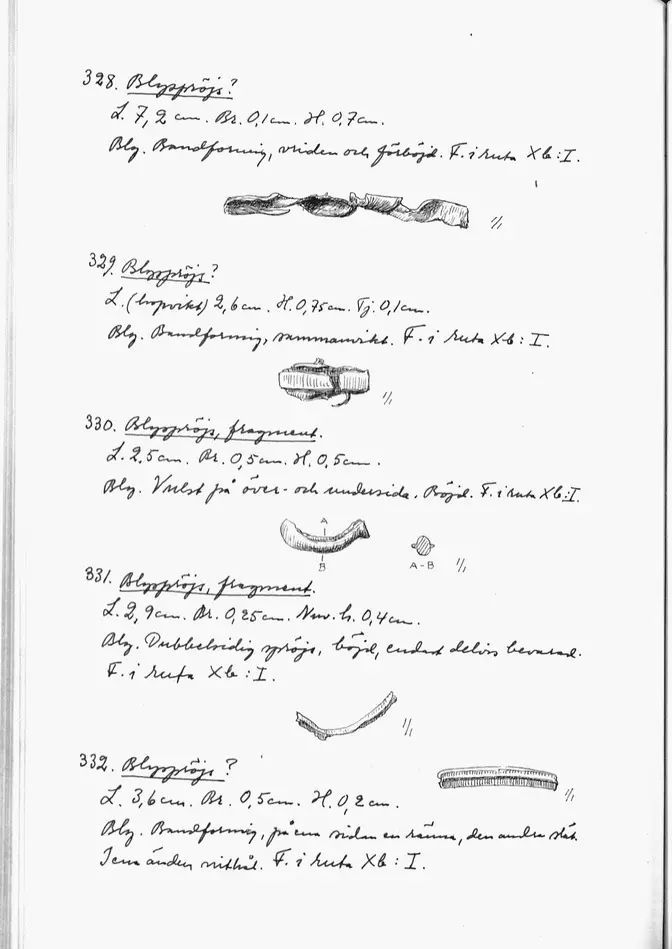 328. Blyspröjs?
L. 7,2 cm. Br. 0,1 cm. H. 0,7 cm.
Bly. Bandformig, vriden och förböjd. F. i ruta Xb:I.
1/1
329. Blyspröjs?
L. (hopvikt) 2,6 cm. H. 0,75 cm. Tj. 0,1 cm.
Bly. Bandformig, sammanvikt. F. i ruta Xb:I.
1/1
330. Blyspröjs, fragment.
L. 2,5 cm. Br. 0,5 cm. H. 0,5 cm.
Bly. Vulst på över- och undersida. Böjd. F. i ruta Xb:I.
A
B
A-B 1/1
331. Blyspröjs, fragment.
L. 2,9 cm. Br. 0,25 cm. Nuv. h. 0,4 cm.
Bly. Dubbelsidig spröjs, böjd, endast delvis bevarad.
F. i ruta Xb:I.
1/1
332. Blyspröjs?
1/1
L. 3,6 cm. Br. 0,5 cm. H. 0,2 cm.
Bly. Bandformig, på ena sidan en ränna, den andra slät.
I ena änden nithål. F. i ruta Xb:I.